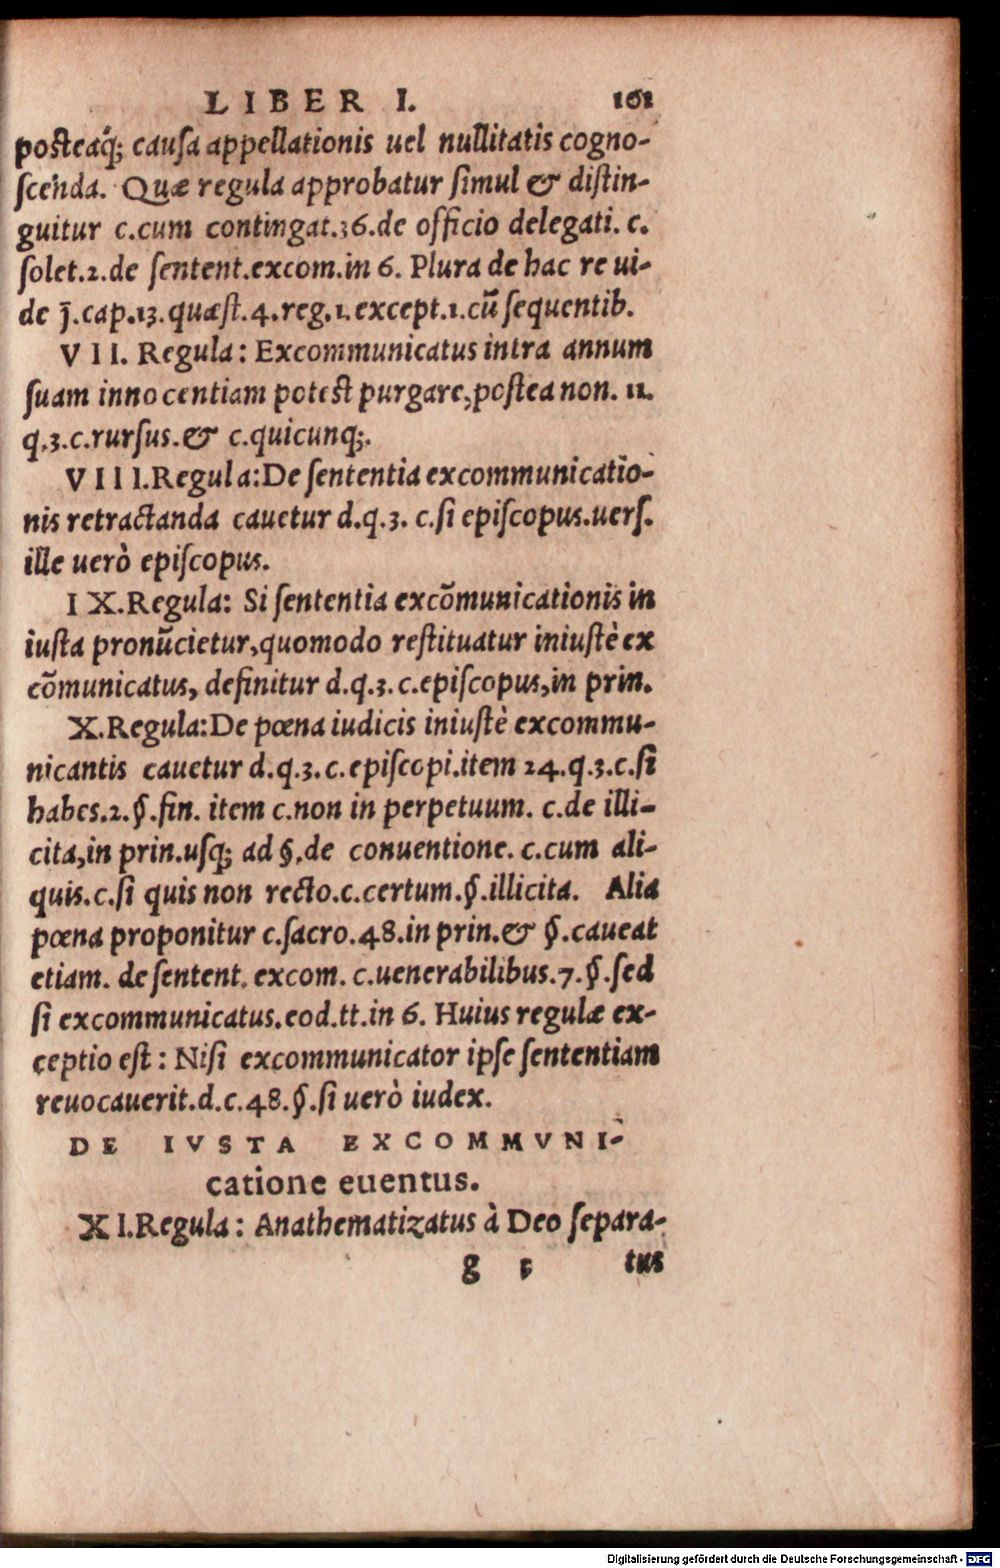 LIBER I. 161
posteaq́; causa appellationis uel nullitatis cogno-
scenda. Quæ regula approbatur simul & distin-
guitur c.cum contingat.36.de officio delegati. c.
solet.2.de sentent.excom.in 6. Plura de hac re ui-
de j̄.cap.13.quæst.4.reg.1.except.1.cū sequentib.
VII. Regula: Excommunicatus intra annum
suam innocentiam potest purgare,postea non. 11.
q.3.c.rursus.& c.quicunq;.
VIII.Regula:De sententia excommunicatio-
nis retractanda cauetur d.q.3. c.si episcopus.uers.
ille uerò episcopus.
IX.Regula: Si sententia excōmunicationis in
iusta pronūcietur,quomodo restituatur iniustè ex
cōmunicatus, definitur d.q.3.c.episcopus,in prin.
X.Regula:De pœna iudicis iniustè excommu-
nicantis cauetur d.q.3.c.episcopi.item 24.q.3.c.si
habes.2.§.fin. item c.non in perpetuum. c.de illi-
cita,in prin.usq; ad §.de conuentione. c.cum ali-
quis.c.si quis non recto.c.certum.§.illicita. Alia
pœna proponitur c.sacro.48.in prin.& §.caueat
etiam. de sentent. excom. c.uenerabilibus.7.§.sed
si excommunicatus.eod.tt.in 6. Huius regulæ ex-
ceptio est: Nisi excommunicator ipse sententiam
reuocauerit.d.c.48.§.si uerò iudex.
DE IVSTA EXCOMMVNI-
catione euentus.
XI.Regula: Anathematizatus à Deo separa-
g 5 tus
Digitalisierung gefördert durch die Deutsche Forschungsgemeinschaft - DFG